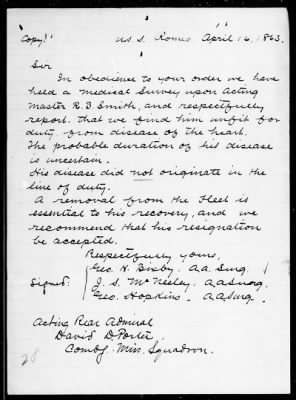 Copy!
U.S.S. Romeo April 16, 1863.
Sir
In obedience to your order we have
held a Medical Survey upon Acting
Master R. B. Smith, and respectfully
report. that we find him unfit for
duty from disease of the heart.
The probable duration of his disease
is uncertain.
His disease did not originate in the
line of duty.
A removal from the Fleet is
essential to his recovery, and we
recommend that his resignation
be accepted.
Respectfully yours,
Geo. H. Bixby. A.A. Surg.
Signed: J. S. McNeeley. A.A. Surg.
Geo. Hopkins. A.A. Surg.
Acting Rear Admiral
David D. Porter.
Comdg. Miss. Squadron.
28